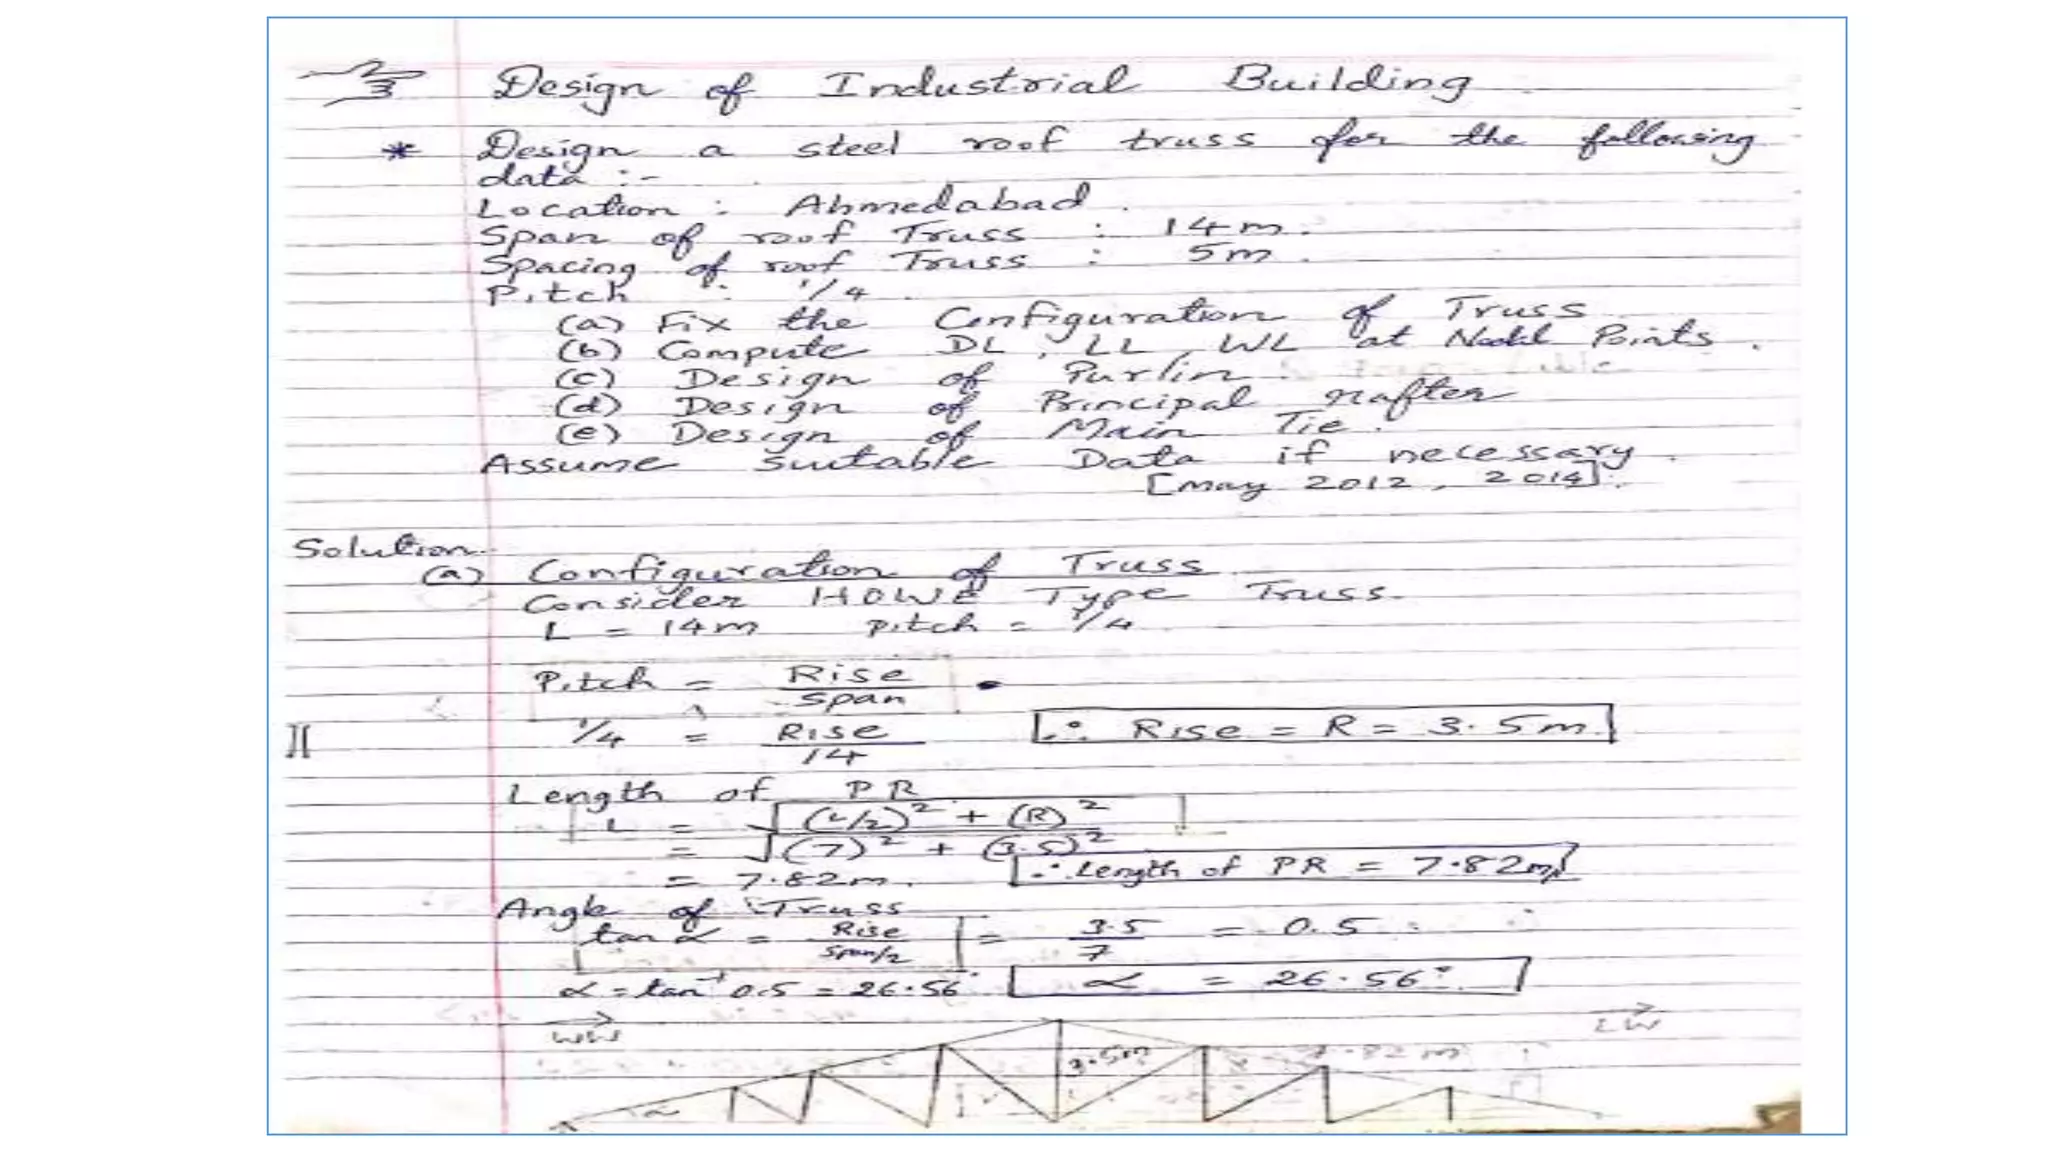 Design of Industrial Building
* Design a steel roof truss for the following
data :-
Location : Ahmedabad.
Span of roof Truss : 14m.
Spacing of roof Truss : 5m.
Pitch : 1/4.
(a) Fix the Configuration of Truss
(b) Compute DL, LL, WL at Nodal Points.
(c) Design of Purlin.
(d) Design of Principal rafter
(e) Design of Main Tie.
Assume suitable Data if necessary.
[May 2012, 2014].
Solution.
(a) Configuration of Truss
Consider HOWE Type Truss.
L = 14m Pitch = 1/4
Pitch = Rise / Span
1/4 = Rise / 14 ∴ Rise = R = 3.5m.
Length of PR
L = √(L/2)² + (R)²
= √(7)² + (3.5)²
= 7.82m. ∴ Length of PR = 7.82m
Angle of Truss
tan α = Rise / Span/2 = 3.5 / 7 = 0.5
α = tan⁻¹ 0.5 = 26.56° α = 26.56°.
WW LW
3.5m 7.82 m
α